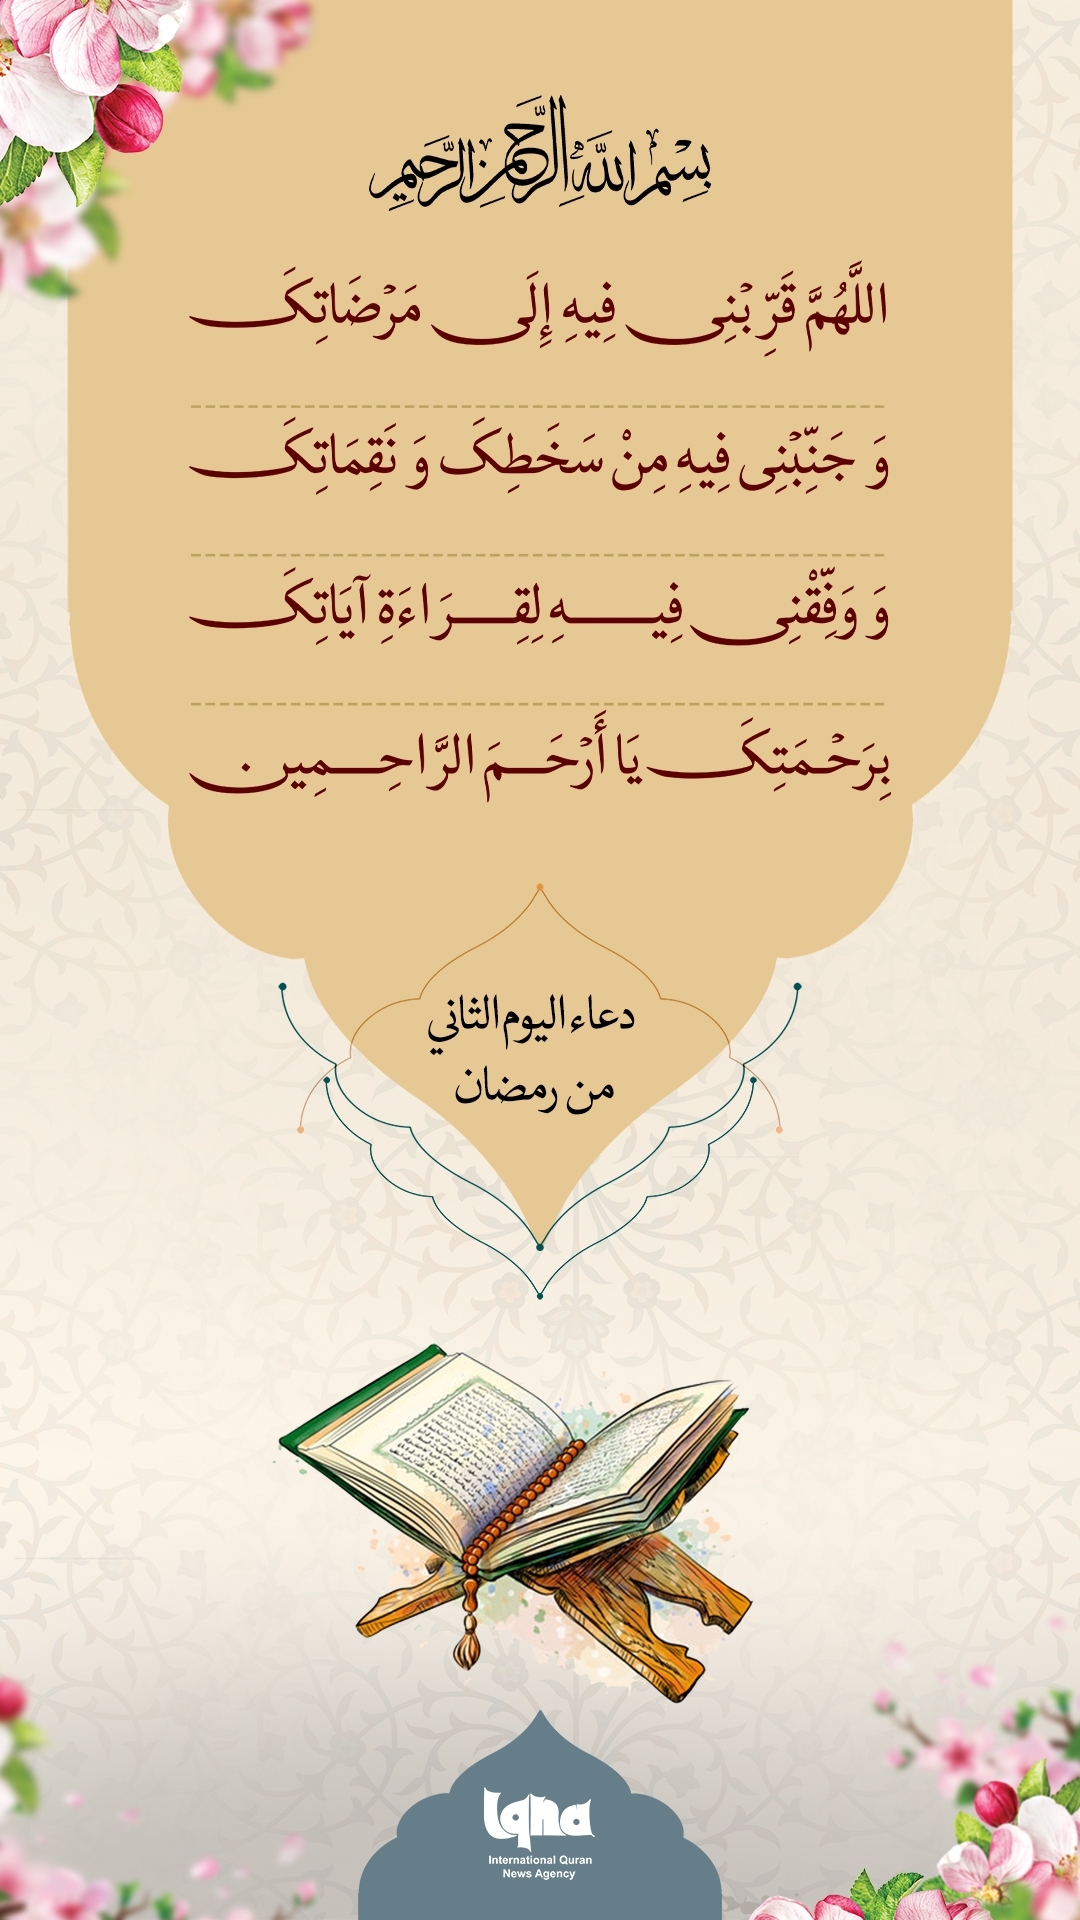 بِسْمِ اللَّهِ الرَّحْمَنِ الرَّحِيمِ
اللَّهُمَّ قَرِّبْنِی فِيهِ إِلَى مَرْضَاتِکَ
وَ جَنِّبْنِی فِيهِ مِنْ سَخَطِکَ وَ نَقِمَاتِکَ
وَ وَفِّقْنِی فِيهِ لِقِرَاءَةِ آيَاتِکَ
بِرَحْمَتِکَ يَا أَرْحَمَ الرَّاحِمِين
دعاء اليوم الثاني
من رمضان
iqna
International Quran
News Agency